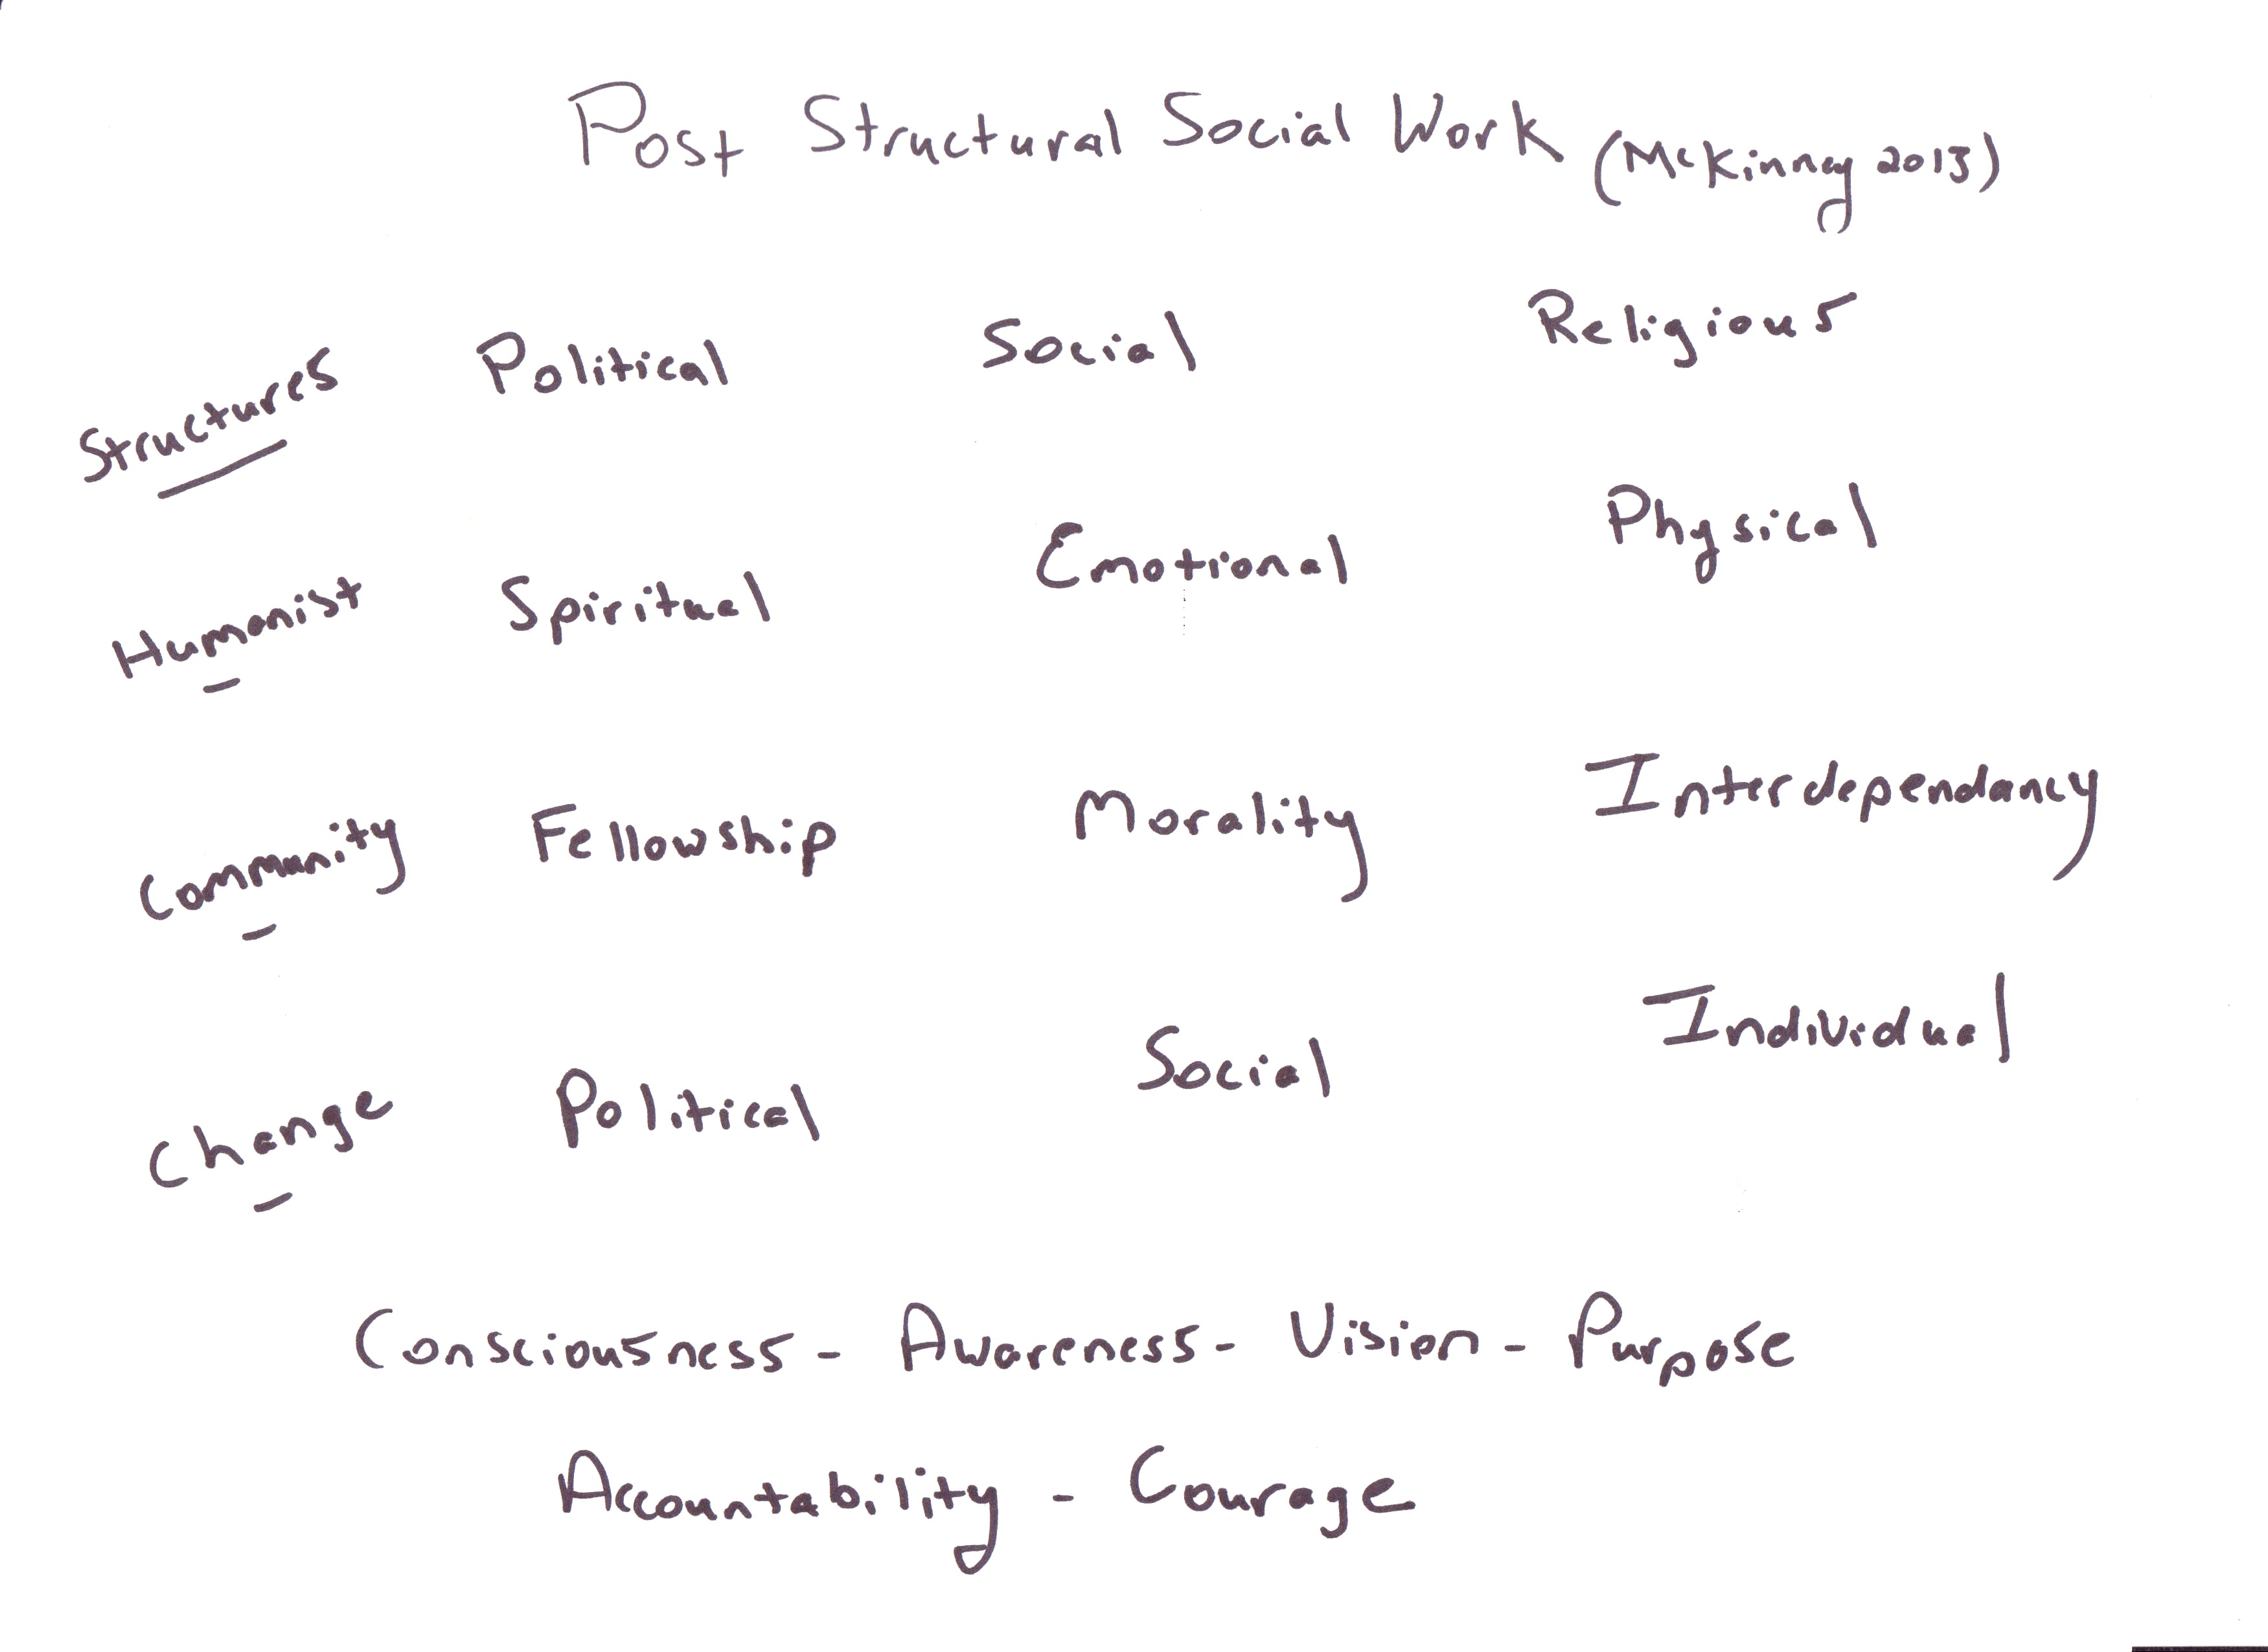 Post Structural Social Work (McKinney 2013)
Structures Political Social Religious
Humanist Spiritual Emotional Physical
Community Fellowship Morality Interdependancy
Change Political Social Individual
Consciousness - Awareness - Vision - Purpose
Accountability - Courage